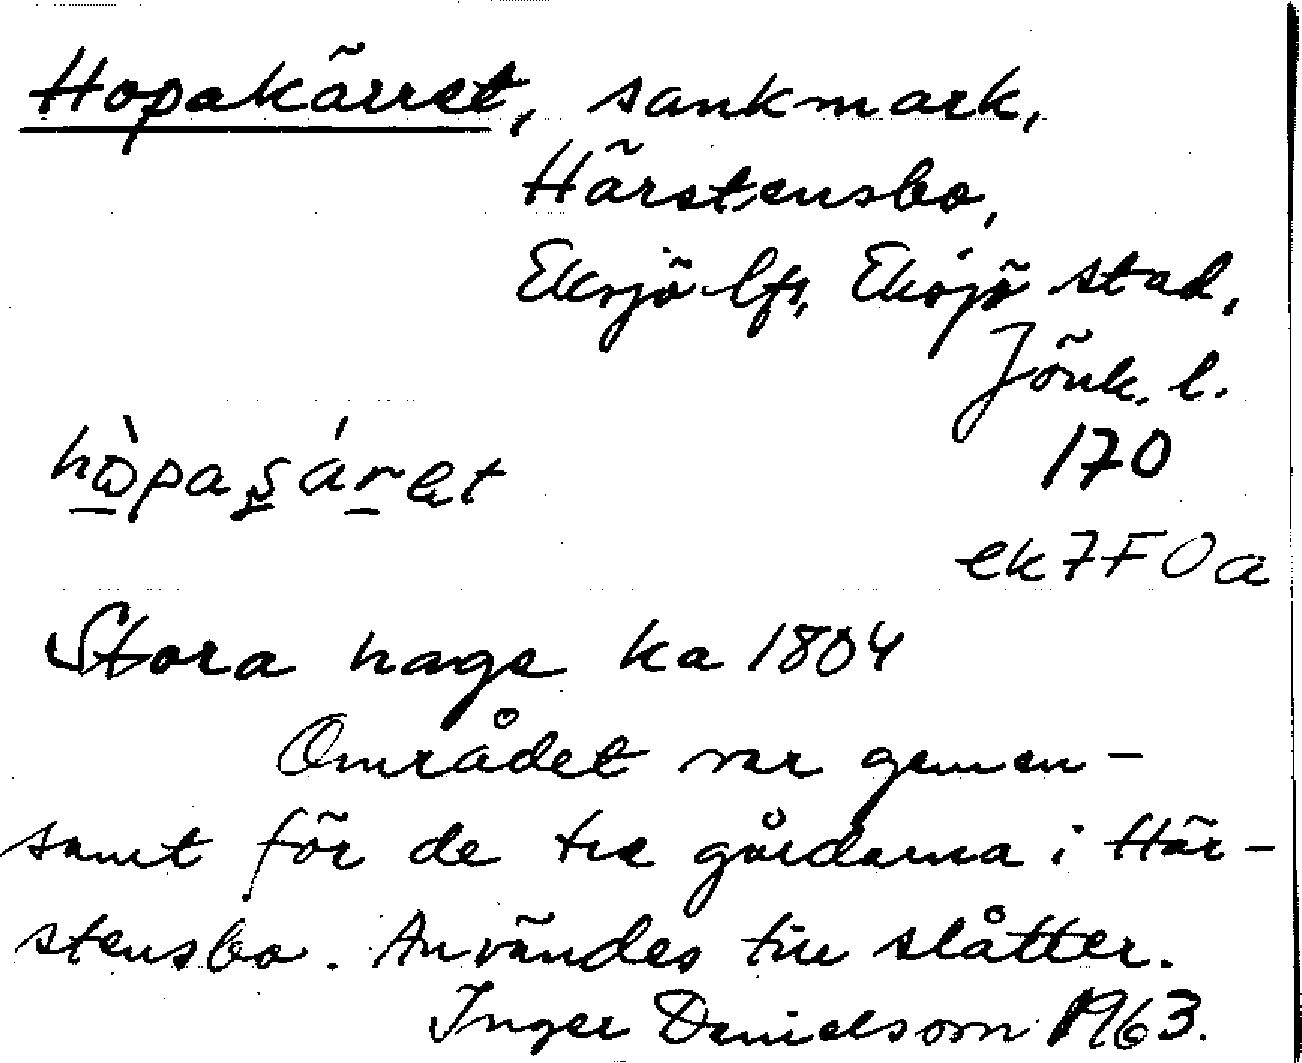 Hopakärret, sankmark,
Härstensbo,
Eksjö lfs, Eksjö stad,
Jönk. l.
170
ek7F0a
Stora hage ka 1804
Området var gemen-
samt för de tre gårdarna i Här-
stensbo. Användes till slåtter.
Inger Danielsson 1963.